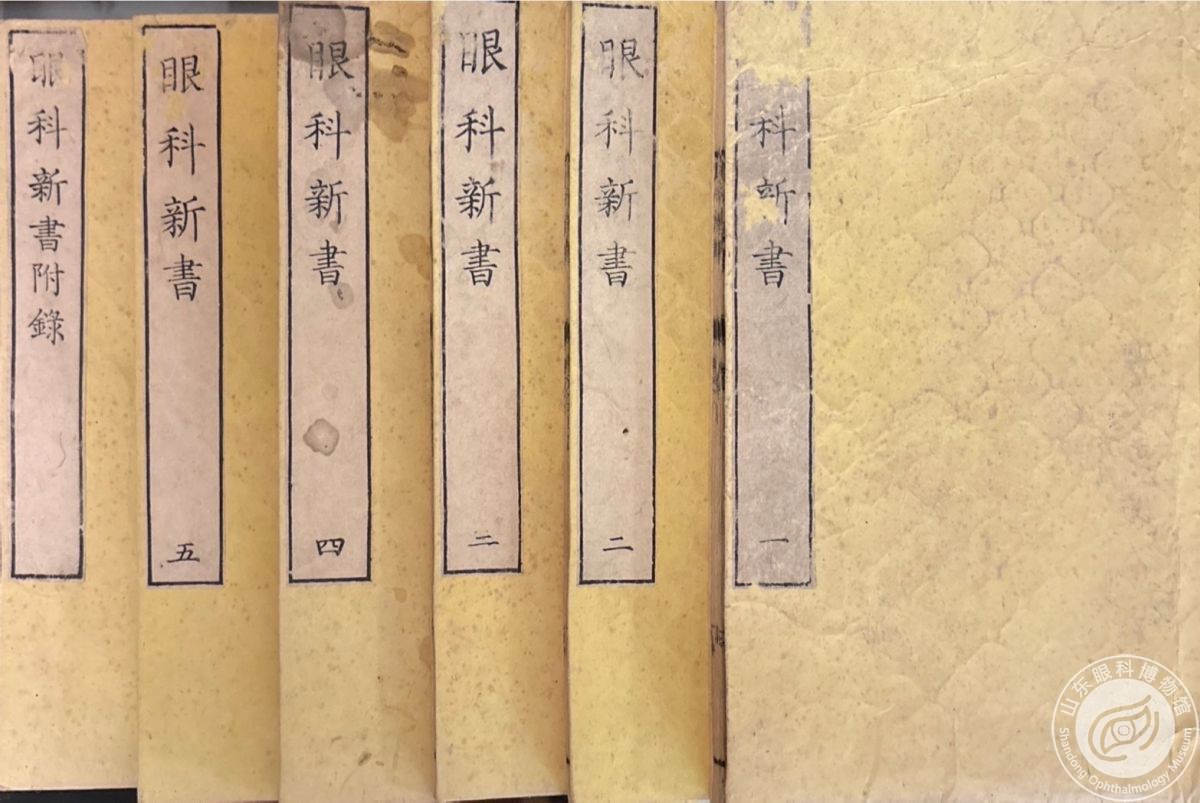 科新書
一
眼科新書
二
眼科新書
三
眼科新書
四
眼科新書
五
眼科新書附錄
山东眼科博物馆
Shandong Ophthalmology Museum